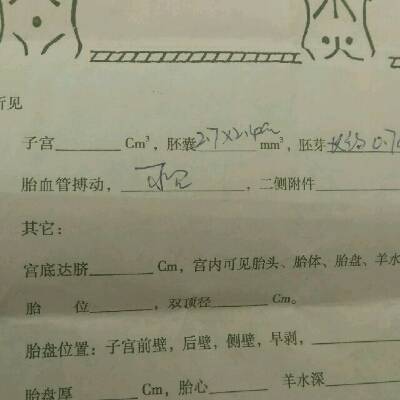 所见
子宫______Cm³，胚囊2.7×2.4cm mm³，胚芽长约0.7c
胎血管搏动，可见，二侧附件
其它：
宫底达脐______Cm，宫内可见胎头、胎体、胎盘、羊水
胎 位______，双顶径______Cm。
胎盘位置：子宫前壁，后壁，侧壁，早剥，
胎盘厚______Cm，胎心______ 羊水深